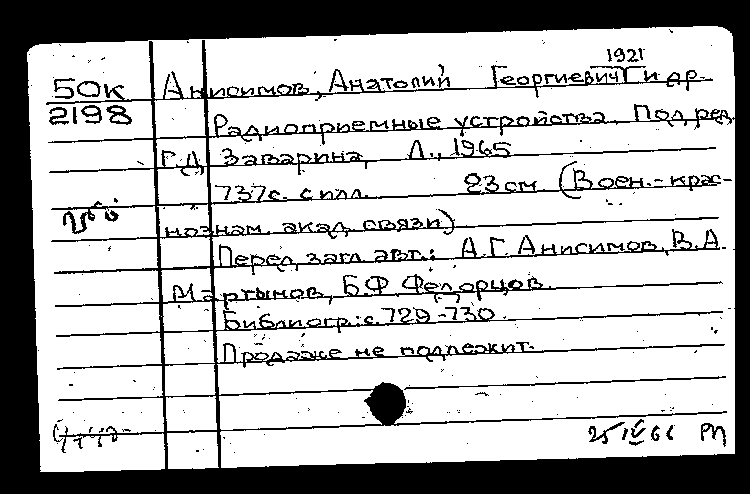 1921
50к Анисимов, Анатолий Георгиевич и др.
2198
Радиоприемные устройства. Под ред.
Г.Д. Заварина, Л., 1965
737с. с илл. 23 см (Воен.-крас-
нознам. акад. связи)
Перед загл. авт.: А.Г. Анисимов, В.А.
Мартынов, Б.Ф. Федорцов.
Библиогр: с. 729-730.
Продаже не подлежит.
25/IV 66 РП